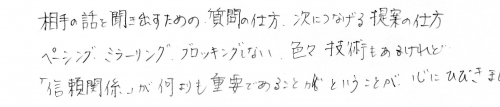 相手の話を聞き出すための質問の仕方、次につなげる提案の仕方
ペーシング、ミラーリング、ブロッキングしない、色々技術もあるけれど
「信頼関係」が何よりも重要であることがということが、心にひびきまし